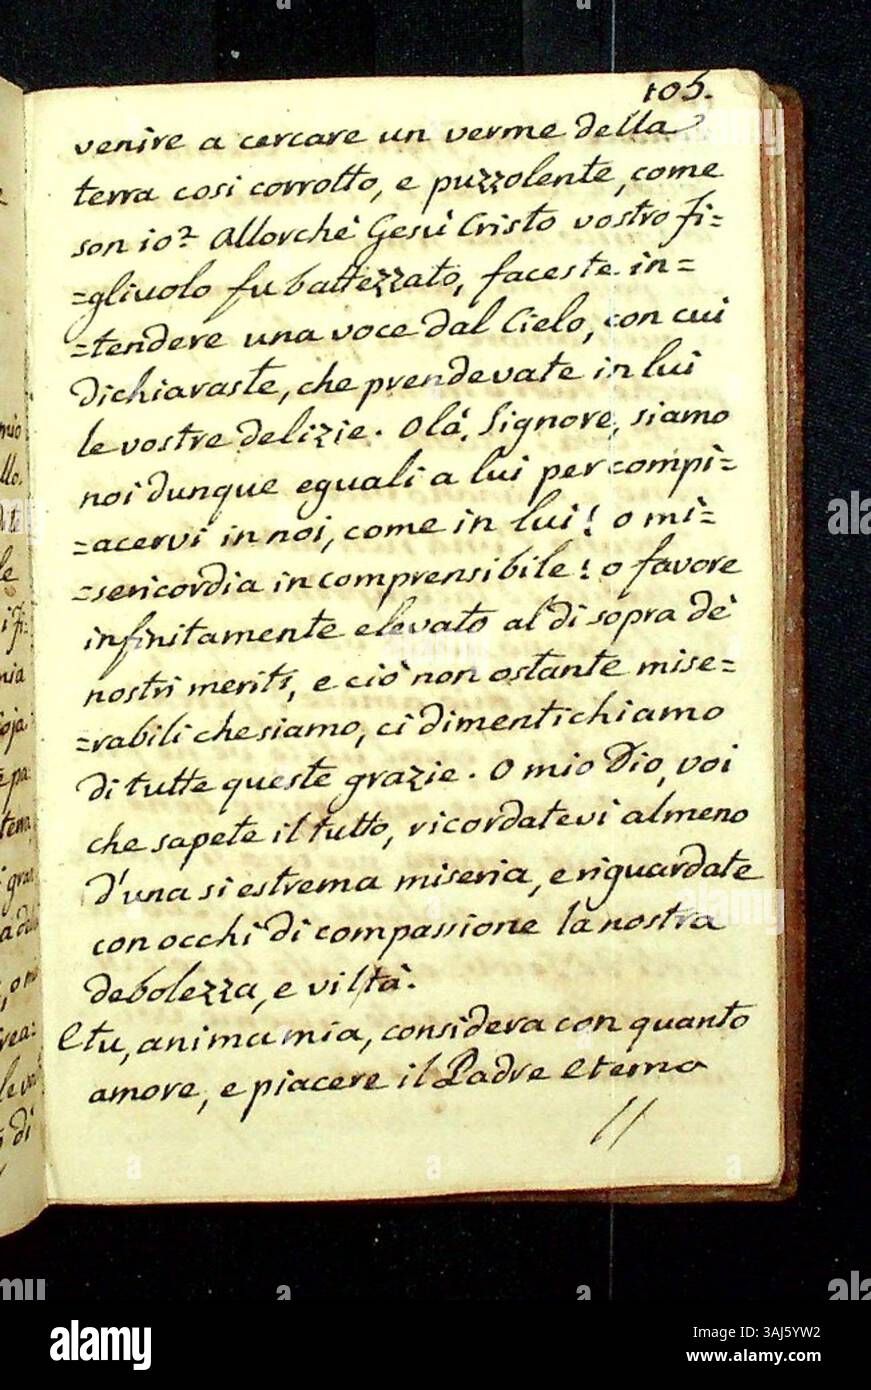 105.
venire a cercare un verme della
terra cosi corrotto, e puzzolente, come
son io? Allorchè Gesù Cristo vostro fi=
=gliuolo fu battezzato, faceste in=
=tendere una voce dal Cielo, con cui
dichiaraste, che prendevate in lui
le vostre delizie. Olà, Signore, siamo
noi dunque eguali a lui per compi=
=acervi in noi, come in lui! o mi=
=sericordia incomprensibile! o favore
infinitamente elevato al di sopra de'
nostri meriti, e ciò non ostante mise=
=rabili che siamo, ci dimentichiamo
di tutte queste grazie. O mio Dio, voi
che sapete il tutto, ricordatevi almeno
d'una si estrema miseria, e riguardate
con occhi di compassione la nostra
debolezza, e viltà.
E tu, anima mia, considera con quanto
amore, e piacere il Padre Eterno
//
alamy
Image ID: 3AJ5YW2
www.alamy.com